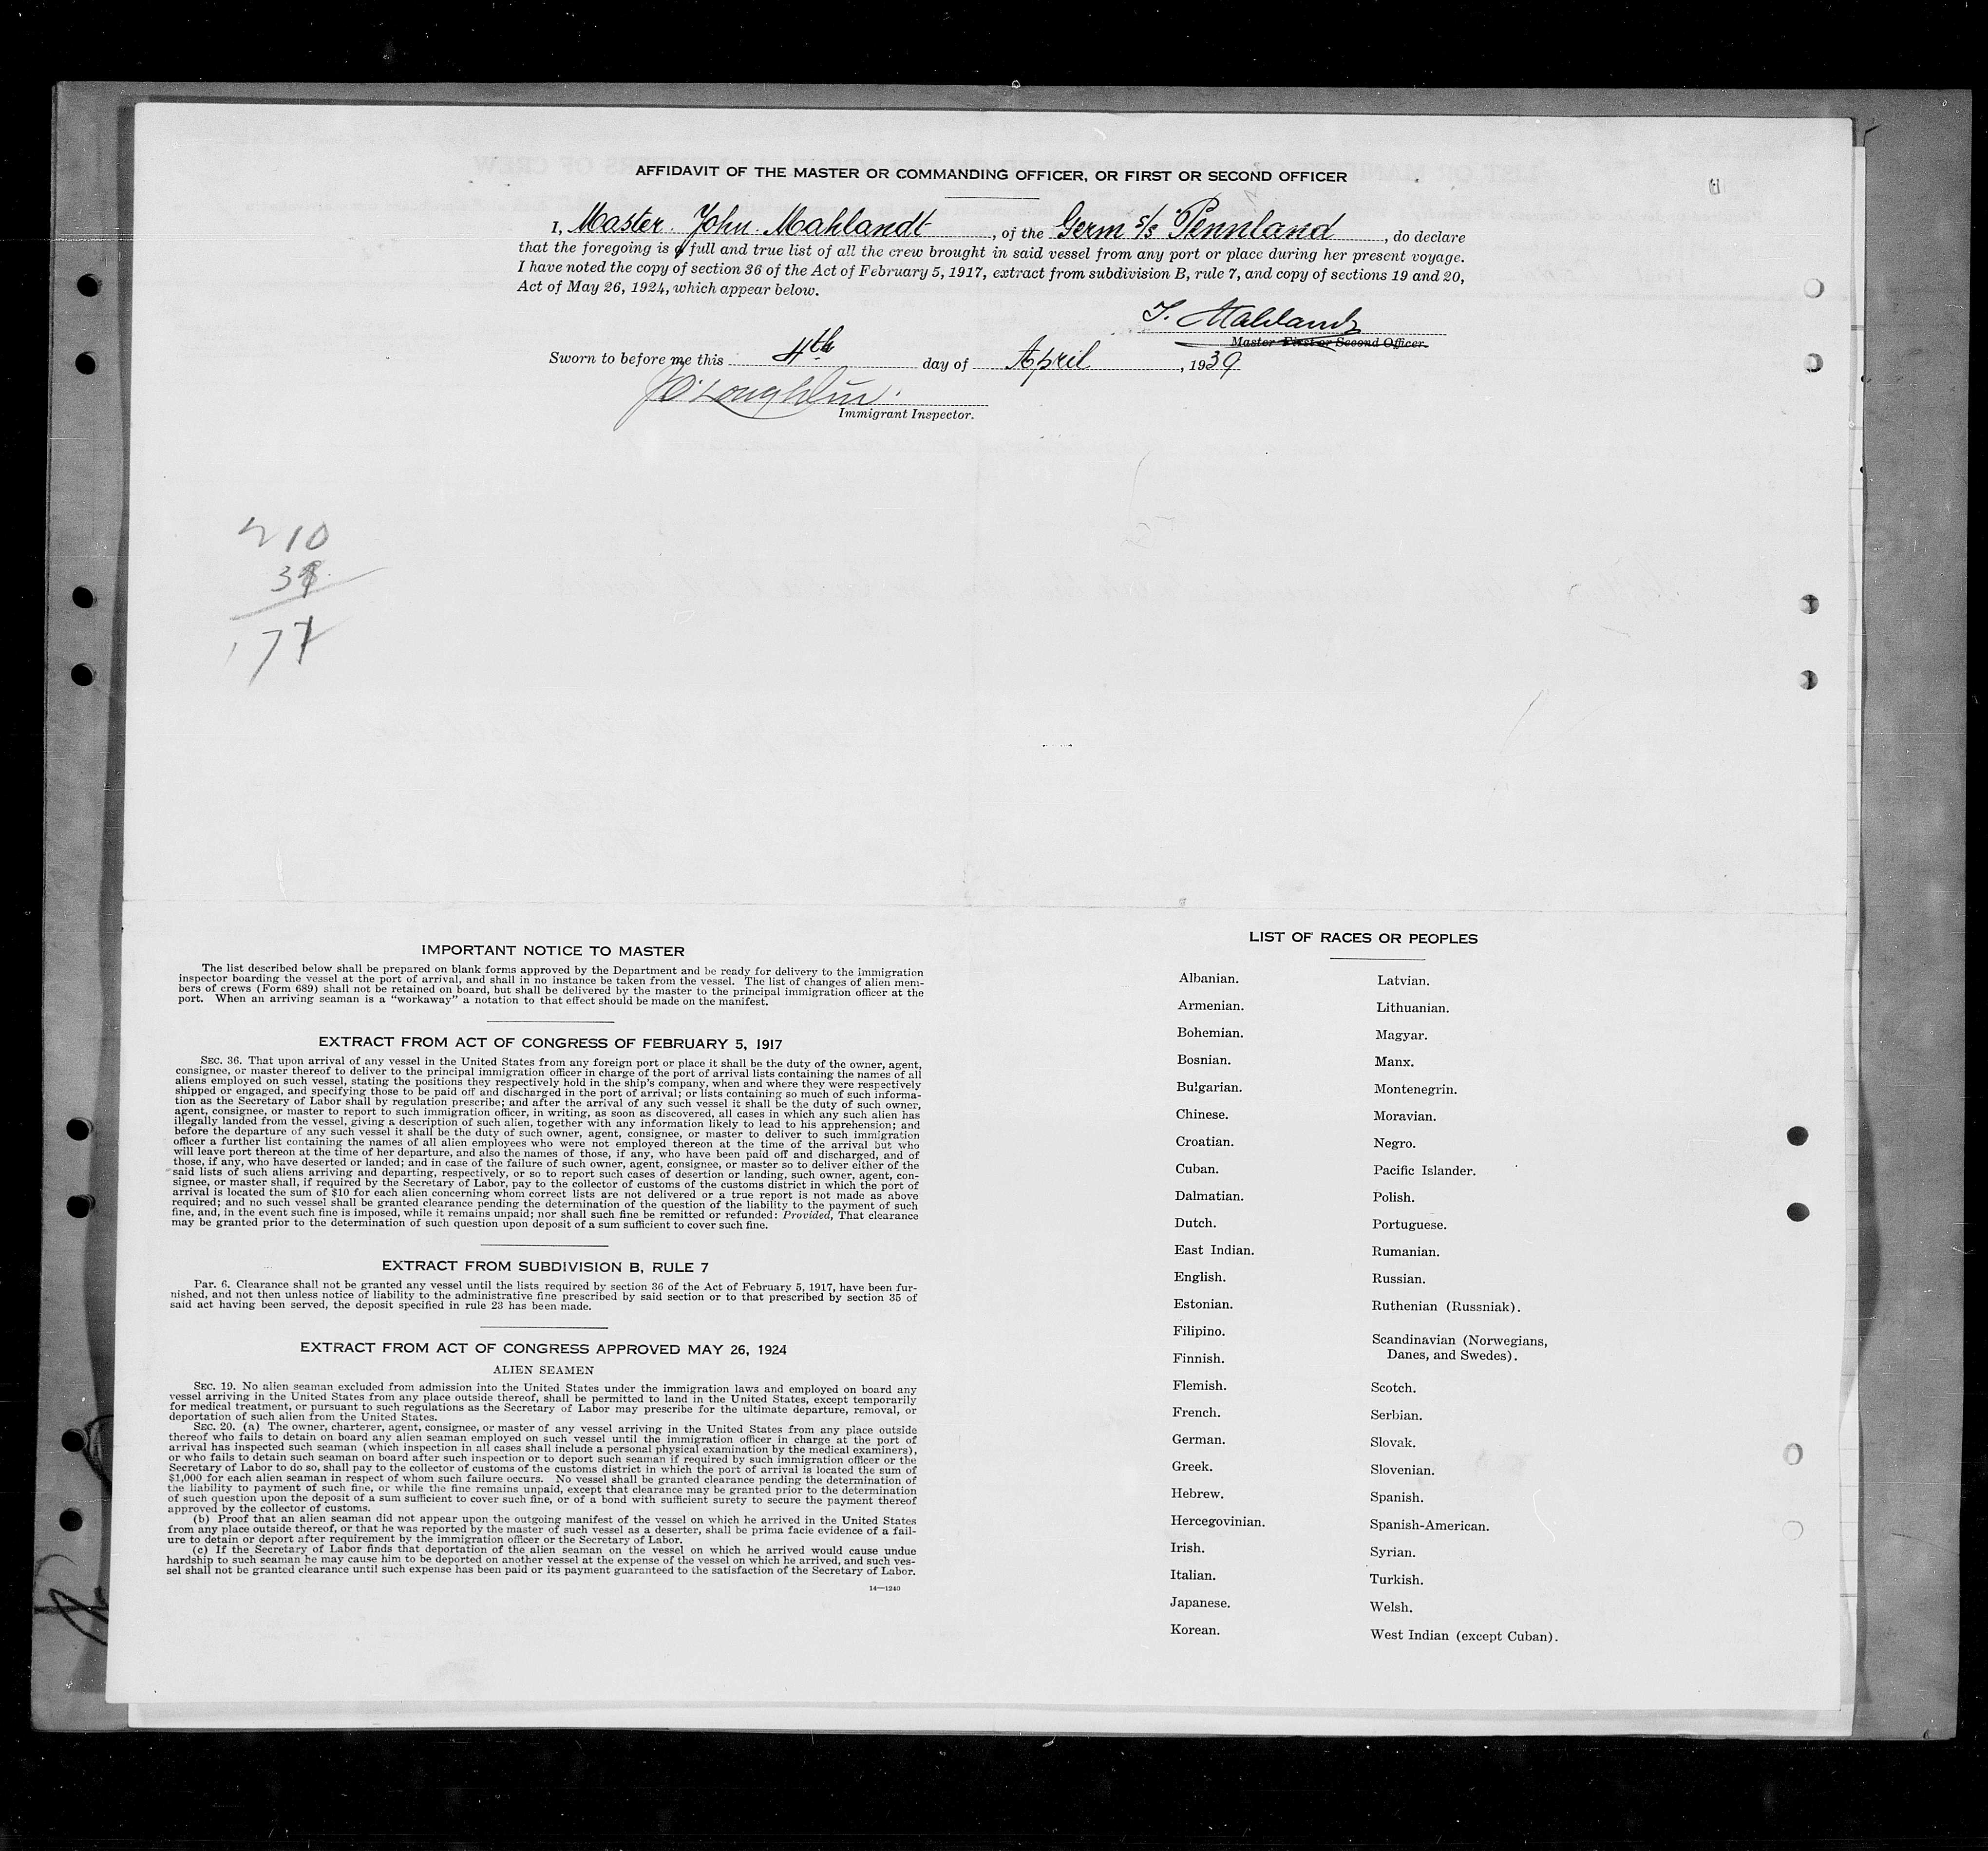 AFFIDAVIT OF THE MASTER OR COMMANDING OFFICER, OR FIRST OR SECOND OFFICER
I, Master John Mahlandt, of the Germ s/s Pennland, do declare
that the foregoing is a full and true list of all the crew brought in said vessel from any port or place during her present voyage.
I have noted the copy of section 36 of the Act of February 5, 1917, extract from subdivision B, rule 7, and copy of sections 19 and 20,
Act of May 26, 1924, which appear below.
J. Mahlandt
Master First or Second Officer.
Sworn to before me this 4th day of April, 1939
O'Loughlin
Immigrant Inspector.
210
177
IMPORTANT NOTICE TO MASTER
The list described below shall be prepared on blank forms approved by the Department and be ready for delivery to the immigration
inspector boarding the vessel at the port of arrival, and shall in no instance be taken from the vessel. The list of changes of alien mem-
bers of crews (Form 689) shall not be retained on board, but shall be delivered by the master to the principal immigration officer at the
port. When an arriving seaman is a "workaway" a notation to that effect should be made on the manifest.
EXTRACT FROM ACT OF CONGRESS OF FEBRUARY 5, 1917
SEC. 36. That upon arrival of any vessel in the United States from any foreign port or place it shall be the duty of the owner, agent,
consignee, or master thereof to deliver to the principal immigration officer in charge of the port of arrival lists containing the names of all
aliens employed on such vessel, stating the positions they respectively hold in the ship's company, when and where they were respectively
shipped or engaged, and specifying those to be paid off and discharged in the port of arrival; or lists containing so much of such informa-
tion as the Secretary of Labor shall by regulation prescribe; and after the arrival of any such vessel it shall be the duty of such owner,
agent, consignee, or master to report to such immigration officer, in writing, as soon as discovered, all cases in which any such alien has
illegally landed from the vessel, giving a description of such alien, together with any information likely to lead to his apprehension; and
before the departure of any such vessel it shall be the duty of such owner, agent, consignee, or master to deliver to such immigration
officer a further list containing the names of all alien employees who were not employed thereon at the time of the arrival but who
will leave port thereon at the time of her departure, and also the names of those, if any, who have been paid off and discharged, and of
those, if any, who have deserted or landed; and in case of the failure of such owner, agent, consignee, or master so to deliver either of the
said lists of such aliens arriving and departing, respectively, or so to report such cases of desertion or landing, such owner, agent, con-
signee, or master shall, if required by the Secretary of Labor, pay to the collector of customs of the customs district in which the port of
arrival is located the sum of $10 for each alien concerning whom correct lists are not delivered or a true report is not made as above
required; and no such vessel shall be granted clearance pending the determination of the question of the liability to the payment of such
fine, and, in the event such fine is imposed, while it remains unpaid; nor shall such fine be remitted or refunded: Provided, That clearance
may be granted prior to the determination of such question upon deposit of a sum sufficient to cover such fine.
EXTRACT FROM SUBDIVISION B, RULE 7
Par. 6. Clearance shall not be granted any vessel until the lists required by section 36 of the Act of February 5, 1917, have been fur-
nished, and not then unless notice of liability to the administrative fine prescribed by said section or to that prescribed by section 35 of
said act having been served, the deposit specified in rule 23 has been made.
EXTRACT FROM ACT OF CONGRESS APPROVED MAY 26, 1924
ALIEN SEAMEN
SEC. 19. No alien seaman excluded from admission into the United States under the immigration laws and employed on board any
vessel arriving in the United States from any place outside thereof, shall be permitted to land in the United States, except temporarily
for medical treatment, or pursuant to such regulations as the Secretary of Labor may prescribe for the ultimate departure, removal, or
deportation of such alien from the United States.
SEC. 20. (a) The owner, charterer, agent, consignee, or master of any vessel arriving in the United States from any place outside
thereof who fails to detain on board any alien seaman employed on such vessel until the immigration officer in charge at the port of
arrival has inspected such seaman (which inspection in all cases shall include a personal physical examination by the medical examiners),
or who fails to detain such seaman on board after such inspection or to deport such seaman if required by such immigration officer or the
Secretary of Labor to do so, shall pay to the collector of customs of the customs district in which the port of arrival is located the sum of
$1,000 for each alien seaman in respect of whom such failure occurs. No vessel shall be granted clearance pending the determination of
the liability to payment of such fine, or while the fine remains unpaid, except that clearance may be granted prior to the determination
of such question upon the deposit of a sum sufficient to cover such fine, or of a bond with sufficient surety to secure the payment thereof
approved by the collector of customs.
(b) Proof that an alien seaman did not appear upon the outgoing manifest of the vessel on which he arrived in the United States
from any place outside thereof, or that he was reported by the master of such vessel as a deserter, shall be prima facie evidence of a fail-
ure to detain or deport after requirement by the immigration officer or the Secretary of Labor.
(c) If the Secretary of Labor finds that deportation of the alien seaman on the vessel on which he arrived would cause undue
hardship to such seaman he may cause him to be deported on another vessel at the expense of the vessel on which he arrived, and such ves-
sel shall not be granted clearance until such expense has been paid or its payment guaranteed to the satisfaction of the Secretary of Labor.
14—1240
LIST OF RACES OR PEOPLES
Albanian.
Armenian.
Bohemian.
Bosnian.
Bulgarian.
Chinese.
Croatian.
Cuban.
Dalmatian.
Dutch.
East Indian.
English.
Estonian.
Filipino.
Finnish.
Flemish.
French.
German.
Greek.
Hebrew.
Hercegovinian.
Irish.
Italian.
Japanese.
Korean.
Latvian.
Lithuanian.
Magyar.
Manx.
Montenegrin.
Moravian.
Negro.
Pacific Islander.
Polish.
Portuguese.
Rumanian.
Russian.
Ruthenian (Russniak).
Scandinavian (Norwegians,
Danes, and Swedes).
Scotch.
Serbian.
Slovak.
Slovenian.
Spanish.
Spanish-American.
Syrian.
Turkish.
Welsh.
West Indian (except Cuban).